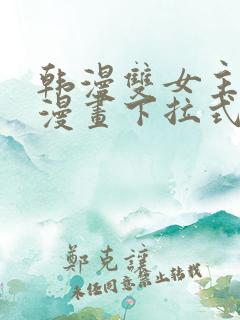 韩漫雙女主
漫畫下拉式
鄭克謹
未经同意禁止转载